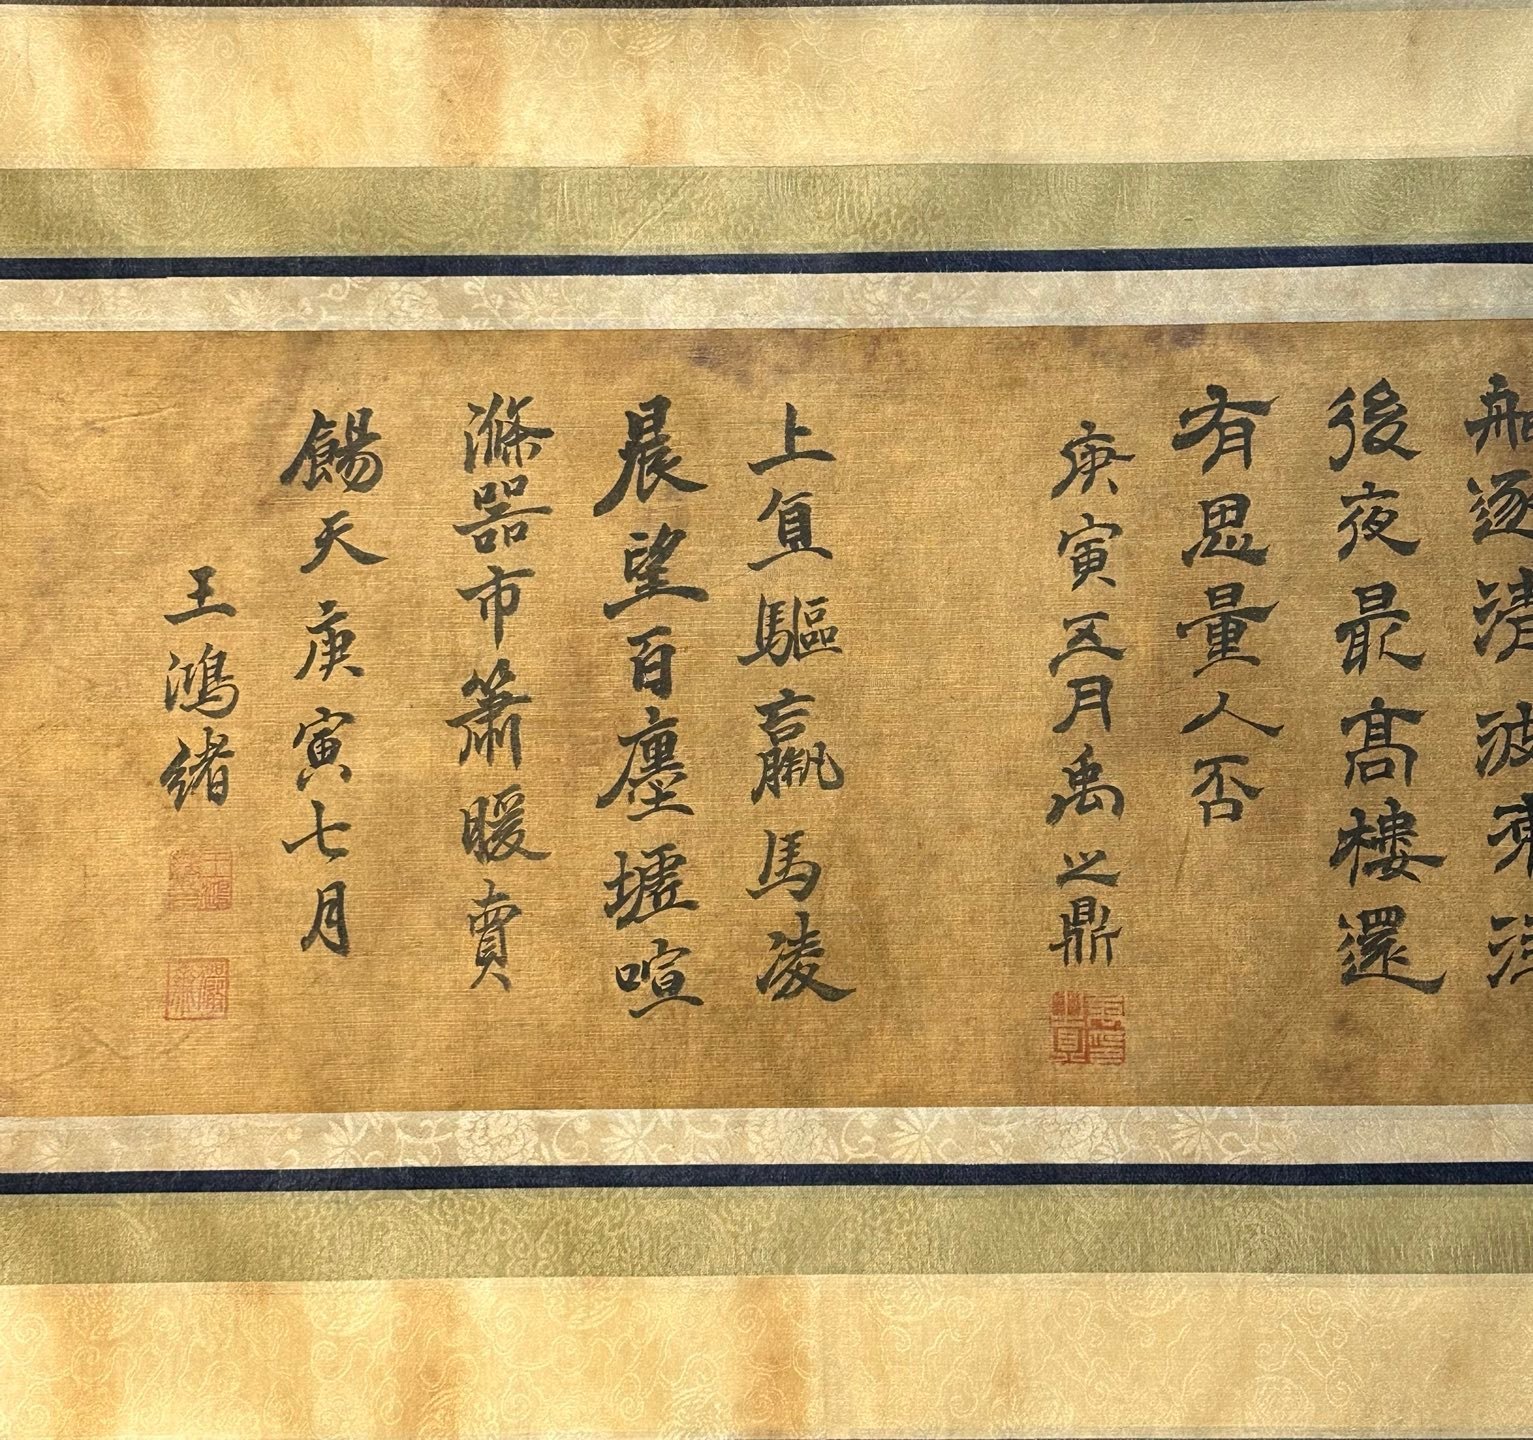 船逐清波東注
後夜最髙樓還
有思量人否
庚寅五月禹之鼎
上直驅羸馬凌
晨望百廛墟喧
滌器市簫暖賣
餳天庚寅七月
王鴻緒